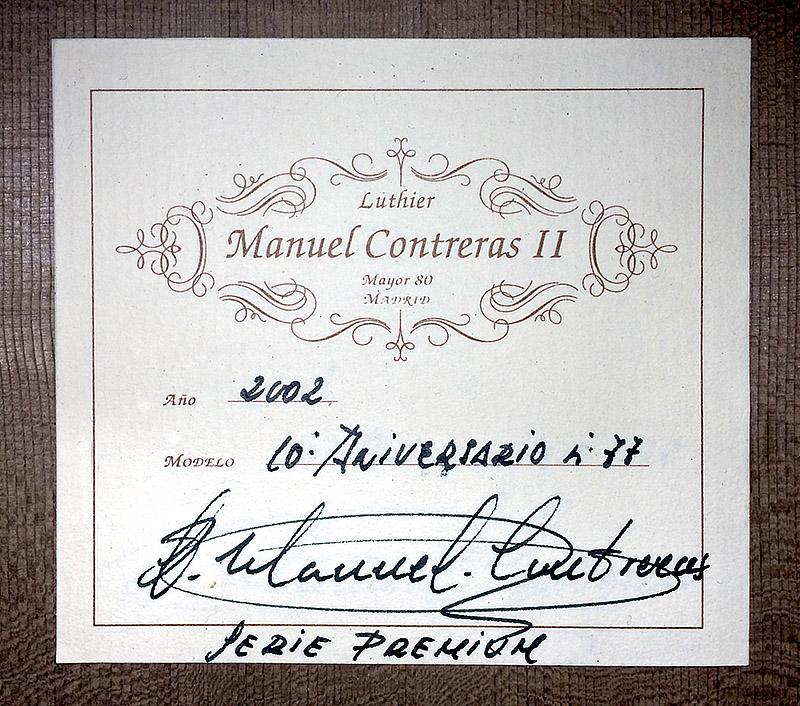 Luthier
Manuel Contreras II
Mayor 80
MADRID
Año 2002
MODELO 10º ANIVERSARIO Nº 77
Manuel Contreras
SERIE PREMIUM